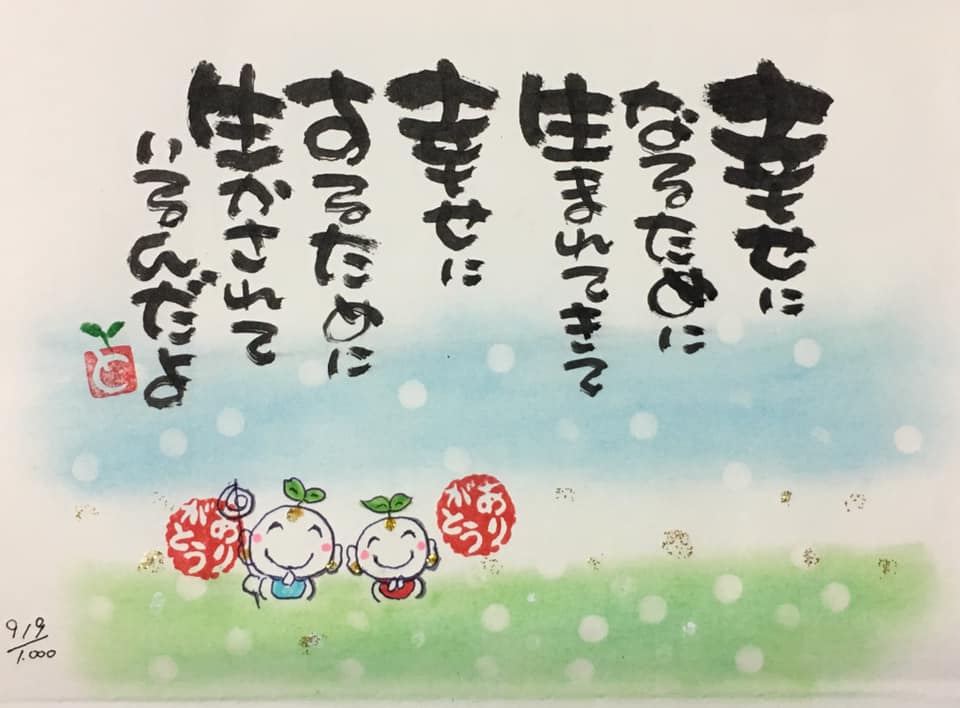 幸せに
なるために
生まれてきて
幸せに
するために
生かされて
いるんだよ
と
ありがとう
ありがとう
919/1.000